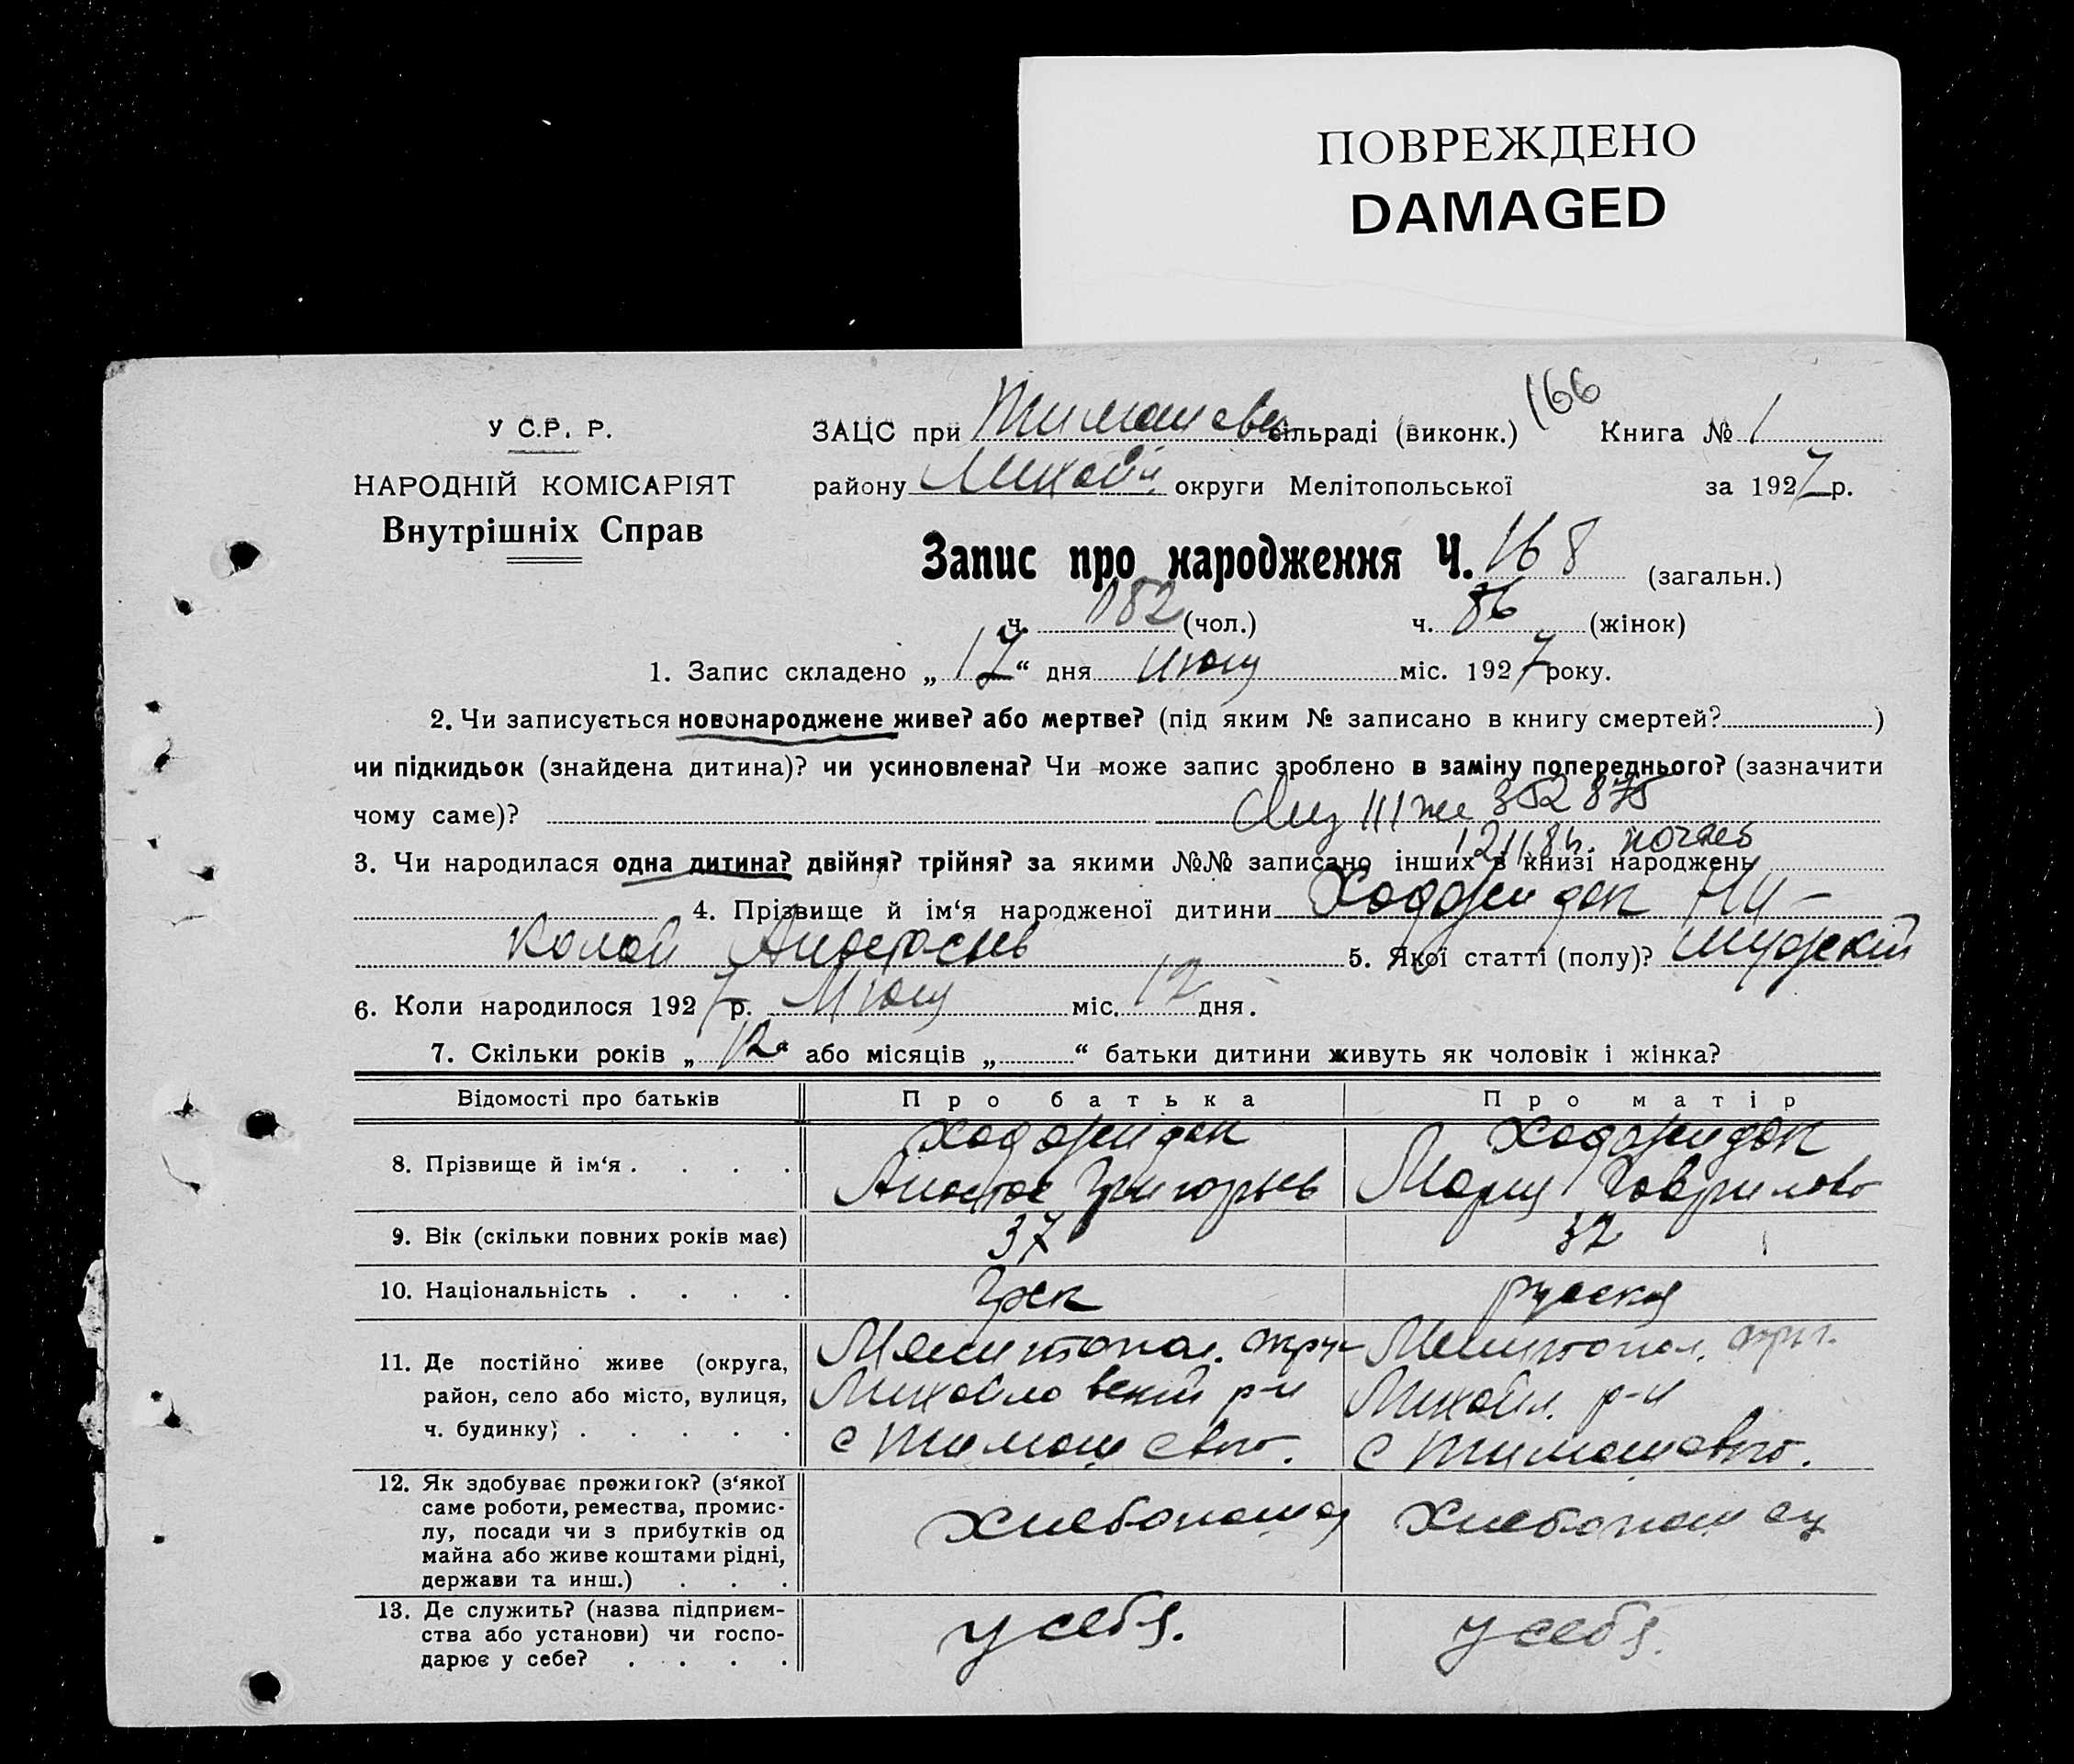 ПОВРЕЖДЕНО
DAMAGED
166
У С.Р. Р.
ЗАЦС при Тимошевк сільраді (виконк.) Книга № 1
НАРОДНІЙ КОМІСАРІЯТ
району Михайл. округи Мелітопольської за 1927 р.
Внутрішніх Справ
Запис про народження Ч. 168 (загальн.)
ч. 82 (чол.) ч. 86 (жінок)
1. Запис складено „17“ дня Июля міс. 1927 року.
2. Чи записується новонароджене живе? або мертве? (під яким № записано в книгу смертей? )
чи підкидьок (знайдена дитина)? чи усиновлена? Чи може запис зроблено в заміну попереднього? (зазначити
чому саме)? III 352875
3. Чи народилася одна дитина? двійня? трійня? за якими №№ записано інших в книзі народжень
4. Прізвище й ім‘я народженої дитини Ходжидок Ни-
колай Анастасьев 5. Якої статті (полу)? мужской
6. Коли народилося 1927 р. Июля міс. 12 дня.
7. Скільки років „12“ або місяців „ “ батьки дитини живуть як чоловік і жінка?
Відомості про батьків Про батька Про матір
8. Прізвище й ім‘я . . . . Ходжидок Ходжидок
Анастас Григорьев Мария Гаврилова
9. Вік (скільки повних років має) 37 32
10. Національність . . . . Грек руская
11. Де постійно живе (округа, район, село або місто, вулиця, ч. будинку) . . . . . Мелитопол. окру Мелитопол. окр.
Михайловский р-н Михайл. р-н
с Тимошевка. с Тимошевка.
12. Як здобуває прожиток? (з‘якої
саме роботи, ремества, промис-
лу, посади чи з прибутків од
майна або живе коштами рідні,
держави та инш.) . . . Хлебопашец Хлебопашец
13. Де служить? (назва підприєм-
ства або установи) чи госпо-
дарює у себе? . . . . у себя. у себя.